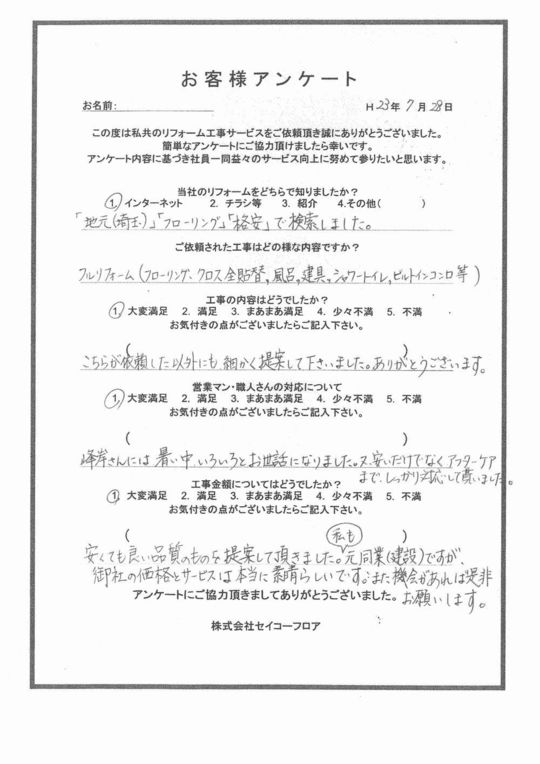 お客様アンケート
お名前: H 23年 7月 28日
この度は私共のリフォーム工事サービスをご依頼頂き誠にありがとうございました。
簡単なアンケートにご協力頂けましたら幸いです。
アンケート内容に基づき社員一同益々のサービス向上に努めて参りたいと思います。
当社のリフォームをどちらで知りましたか？
1. インターネット 2. チラシ等 3. 紹介 4.その他( )
「地元(埼玉)」「フローリング」「格安」で検索しました。
ご依頼された工事はどの様な内容ですか？
フルリフォーム(フローリング、クロス全貼替、風呂、建具、シャワートイレ、ビルトインコンロ等)
工事の内容はどうでしたか？
1. 大変満足 2. 満足 3. まあまあ満足 4. 少々不満 5. 不満
お気付きの点がございましたらご記入下さい。
( )
こちらが依頼した以外にも、細かく提案して下さいました。ありがとうございます。
営業マン・職人さんの対応について
1. 大変満足 2. 満足 3. まあまあ満足 4. 少々不満 5. 不満
お気付きの点がございましたらご記入下さい。
( )
峰岸さんには暑い中、いろいろとお世話になりました。又、安いだけでなくアフターケア
まで、しっかり対応して貰いました。
工事金額についてはどうでしたか？
1. 大変満足 2. 満足 3. まあまあ満足 4. 少々不満 5. 不満
お気付きの点がございましたらご記入下さい。
( )
安くても良い品質のものを提案して頂きました。私も元同業(建設)ですが、
御社の価格とサービスは本当に素晴らしいです。また機会があれば是非
お願いします。
アンケートにご協力頂きましてありがとうございました。
株式会社セイコーフロア